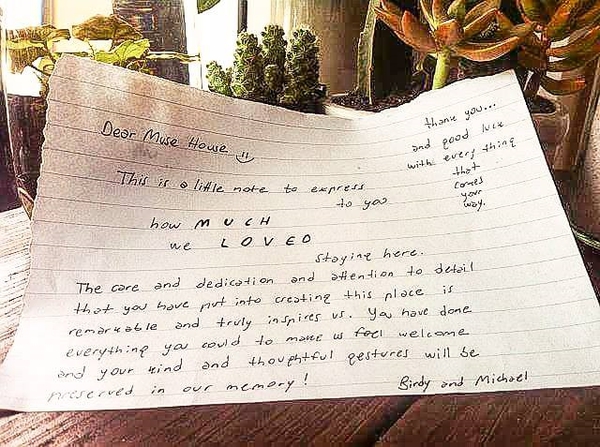 Dear Muse House
This is a little note to express
to you
how MUCH
we LOVED
staying here.
The care and dedication and attention to detail
that you have put into creating this place is
remarkable and truly inspires us. You have done
everything you could to make us feel welcome
and your kind and thoughtful gestures will be
preserved in our memory!
Birdy and Michael
thank you...
and good luck
with every thing
that
comes
your
way.